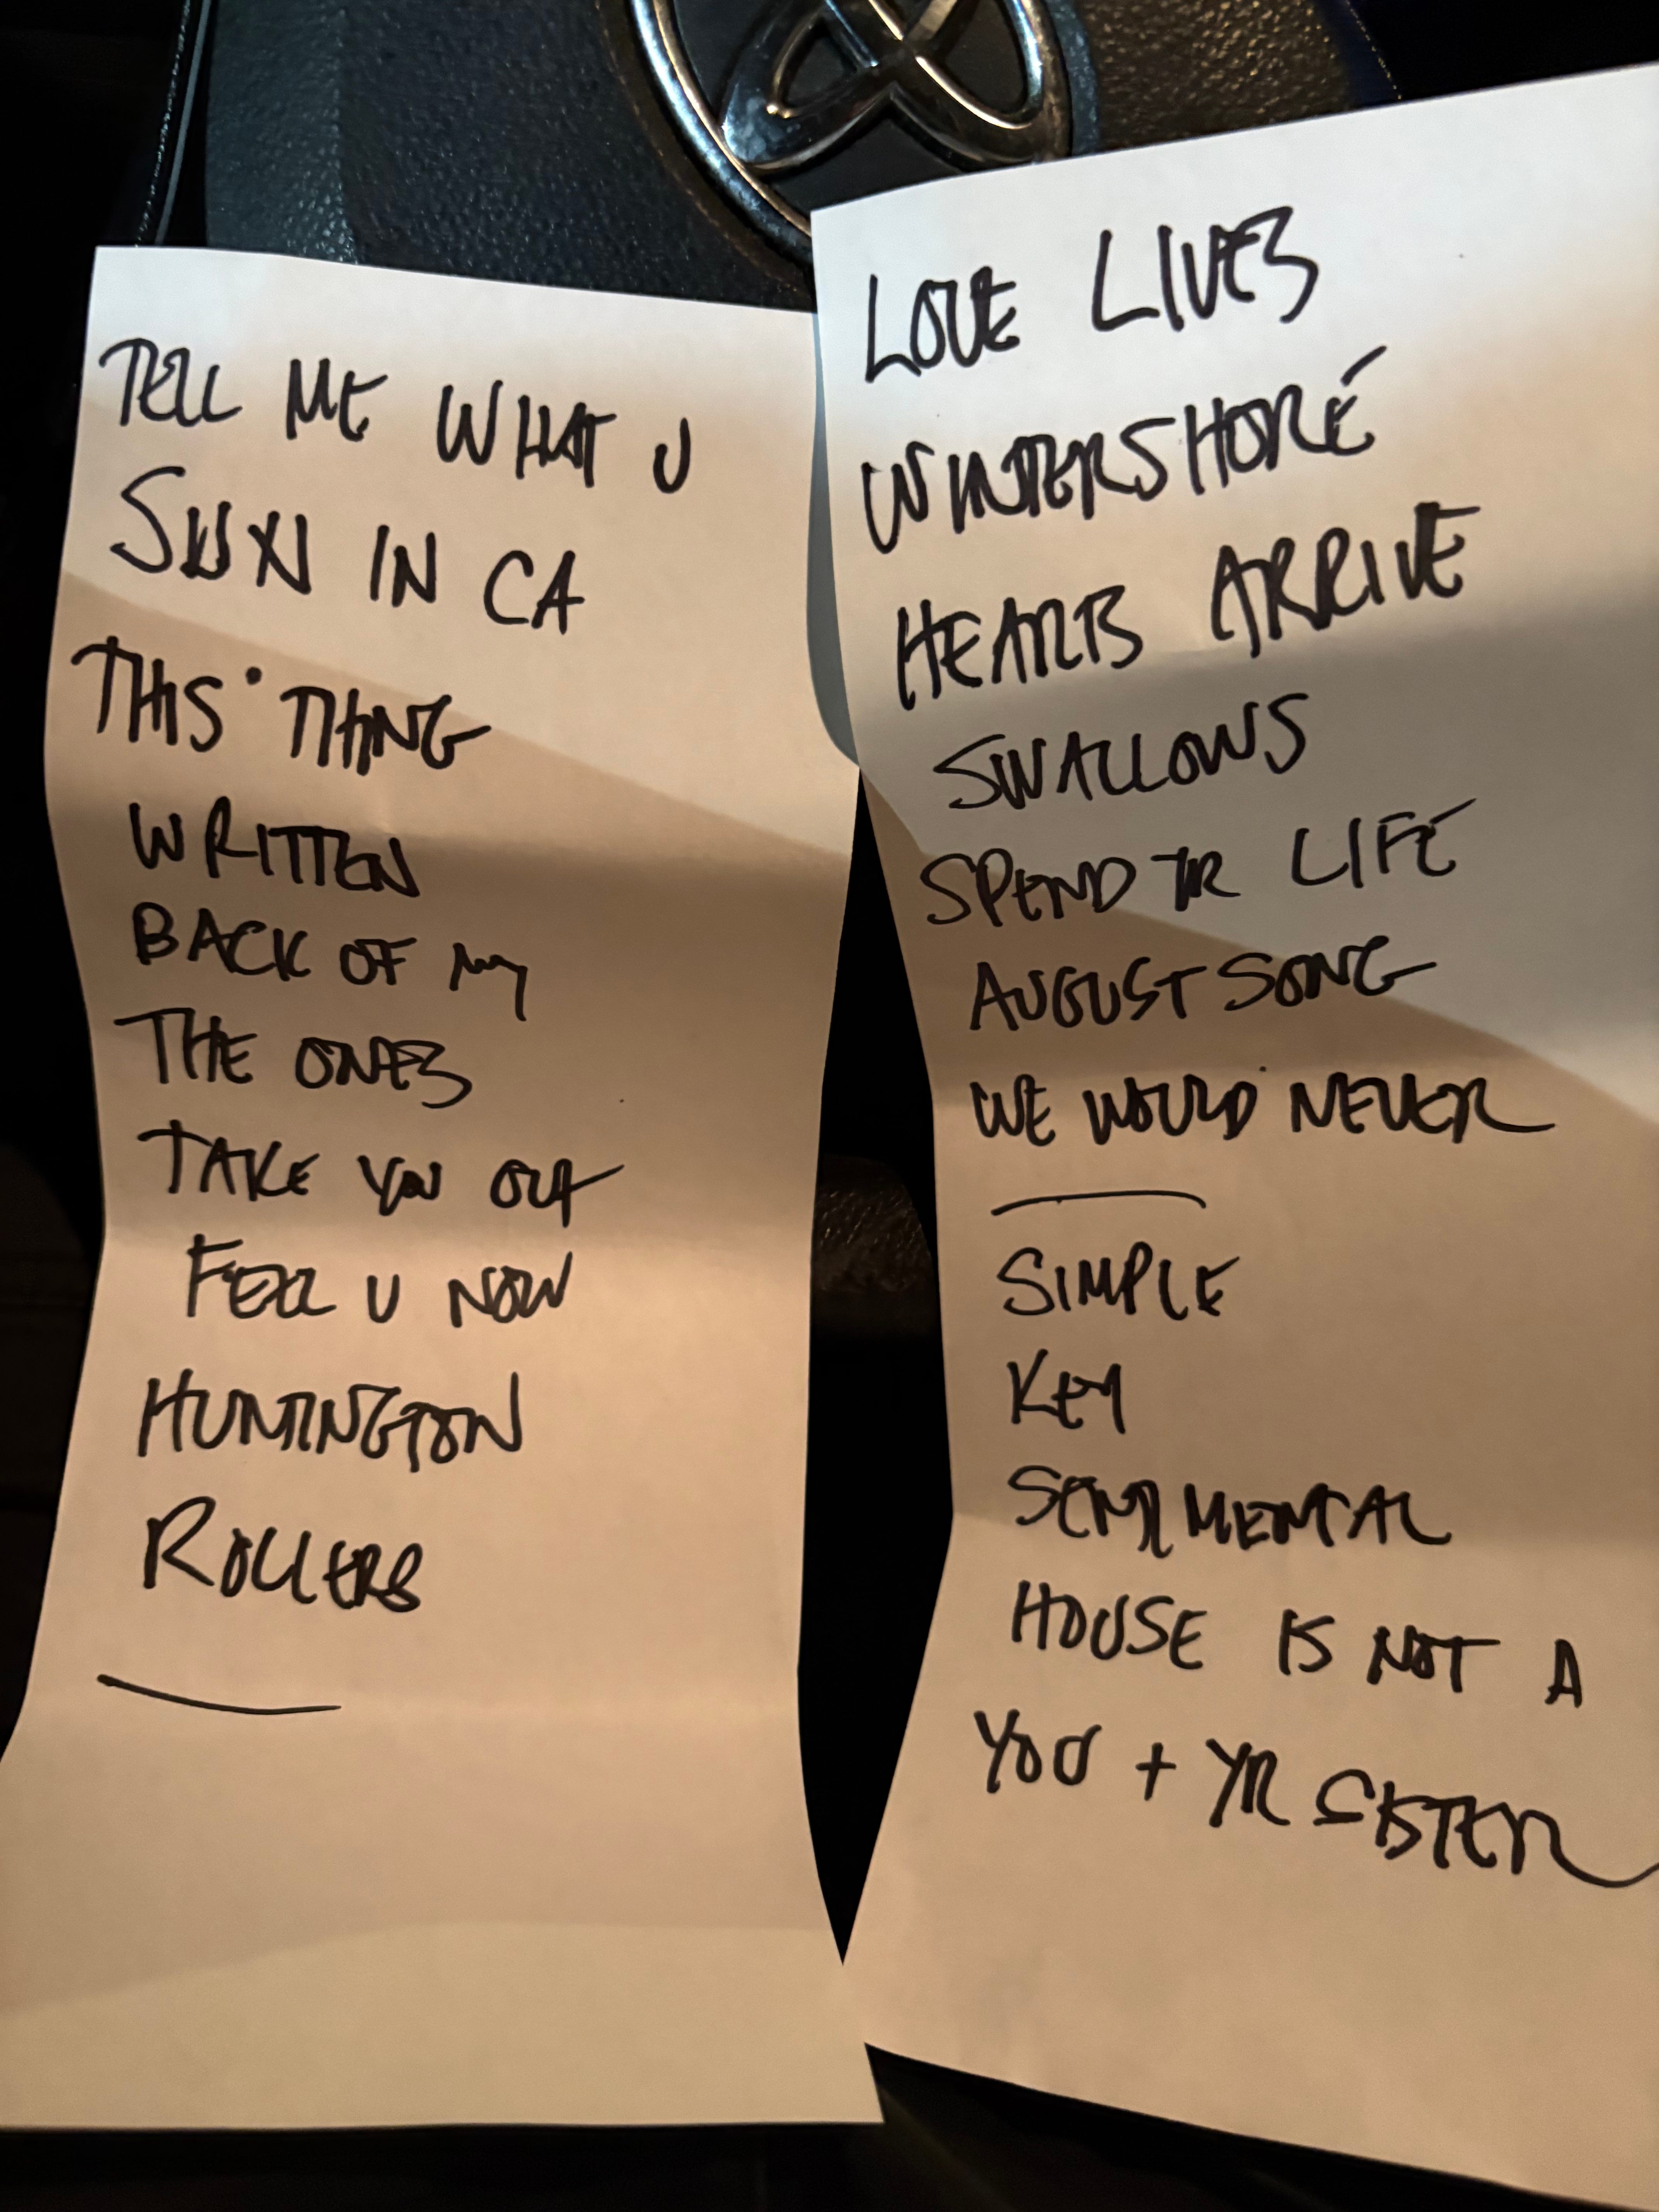 TELL ME WHAT U
SWXN IN CA
THIS THING
WRITTEN
BACK OF MY
THE ONES
TAKE YOU OUT
FEEL U NOW
HUNTINGTON
ROLLERS
LOVE LIVES
WINTERSHORE
HEARTS ARRIVE
SWALLOWS
SPEND YR LIFE
AUGUST SONG
WE WOULD NEVER
SIMPLE
KEY
SEMI MENTAL
HOUSE IS NOT A
YOU + YR SISTER